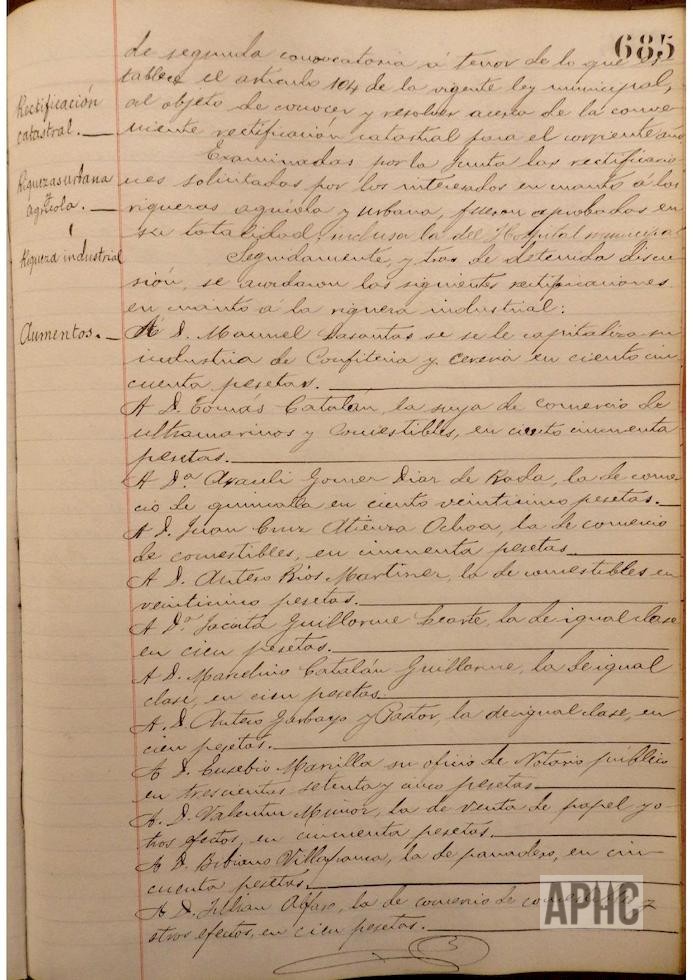 685
de segunda convocatoria á tenor de lo que es
tablece el artículo 104 de la vigente ley municipal,
al objeto de conocer y resolver acerca de la conve
niente rectificación catastral para el corriente año
Rectificación
catastral.
Examinadas por la Junta las rectificacio
nes solicitadas por los interesados en cuanto á las
riquezas agrícola y urbana, fueron aprobadas en
su totalidad, inclusa la del Hospital municipal
Riquezas urbana
y
agrícola.
Seguidamente, y tras de detenida discu
sión, se acordaron las siguientes rectificaciones
en cuanto á la riqueza industrial:
Riqueza industrial
Aumentos.
A D. Manuel se le capitaliza su
industria de Confitería y cerería en ciento cin
cuenta pesetas.
A D. Tomás Catalán, la suya de comercio de
ultramarinos y comestibles, en ciento cincuenta
pesetas.
A D.ª Araceli Gomez Diaz de Rada, la de comer
cio de quincalla en ciento veinticinco pesetas.
A D. Juan Cruz Atienza Ochoa, la de comercio
de comestibles, en cincuenta pesetas
A D. Antero Rios Martinez, la de comestibles en
veinticinco pesetas.
A D.ª Jacinta Guillorme Learte, la de igual clase
en cien pesetas.
A D. Marcelino Catalán Guillorme, la de igual
clase, en cien pesetas.
A D. Antero Garbayo y Pastor, la de igual clase, en
cien pesetas.
A D. Eusebio Mancilla su oficio de Notario público
en trescientas setenta y cinco pesetas
A D. Valentin Muñoz, la de venta de papel y o
tros efectos, en cincuenta pesetas.
A D. Bibiano Villafranca, la de panadero, en cin
cuenta pesetas.
A D. Julian Alfaro, la de comercio de
otros efectos, en cien pesetas.
APHC